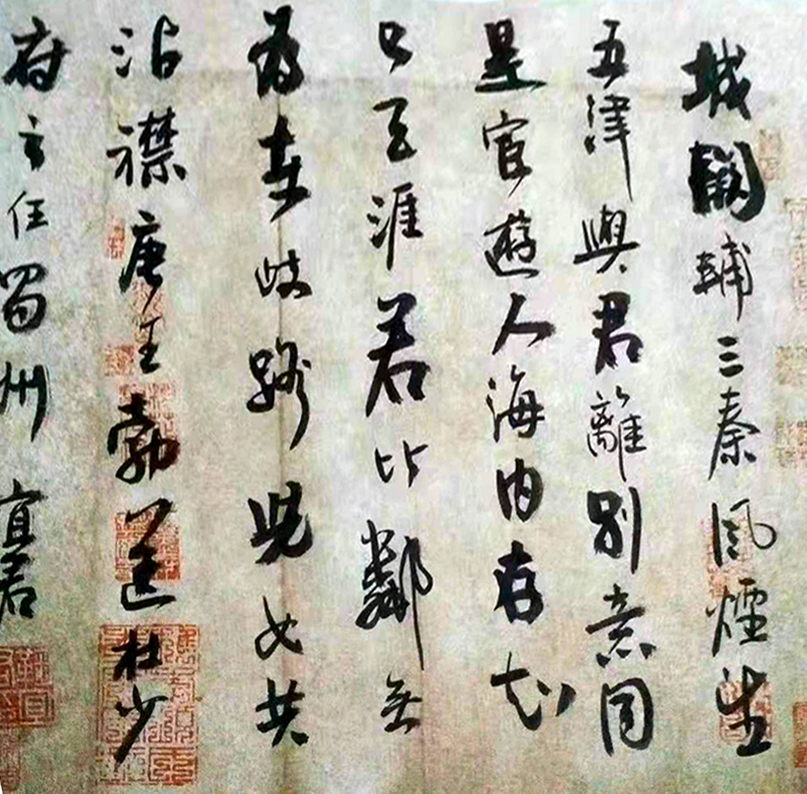 城闕輔三秦風煙望
五津與君離別意同
是宦遊人海內存知
己天涯若比鄰無
為在歧路兒女共
沾襟唐王勃送杜少
府之任蜀州